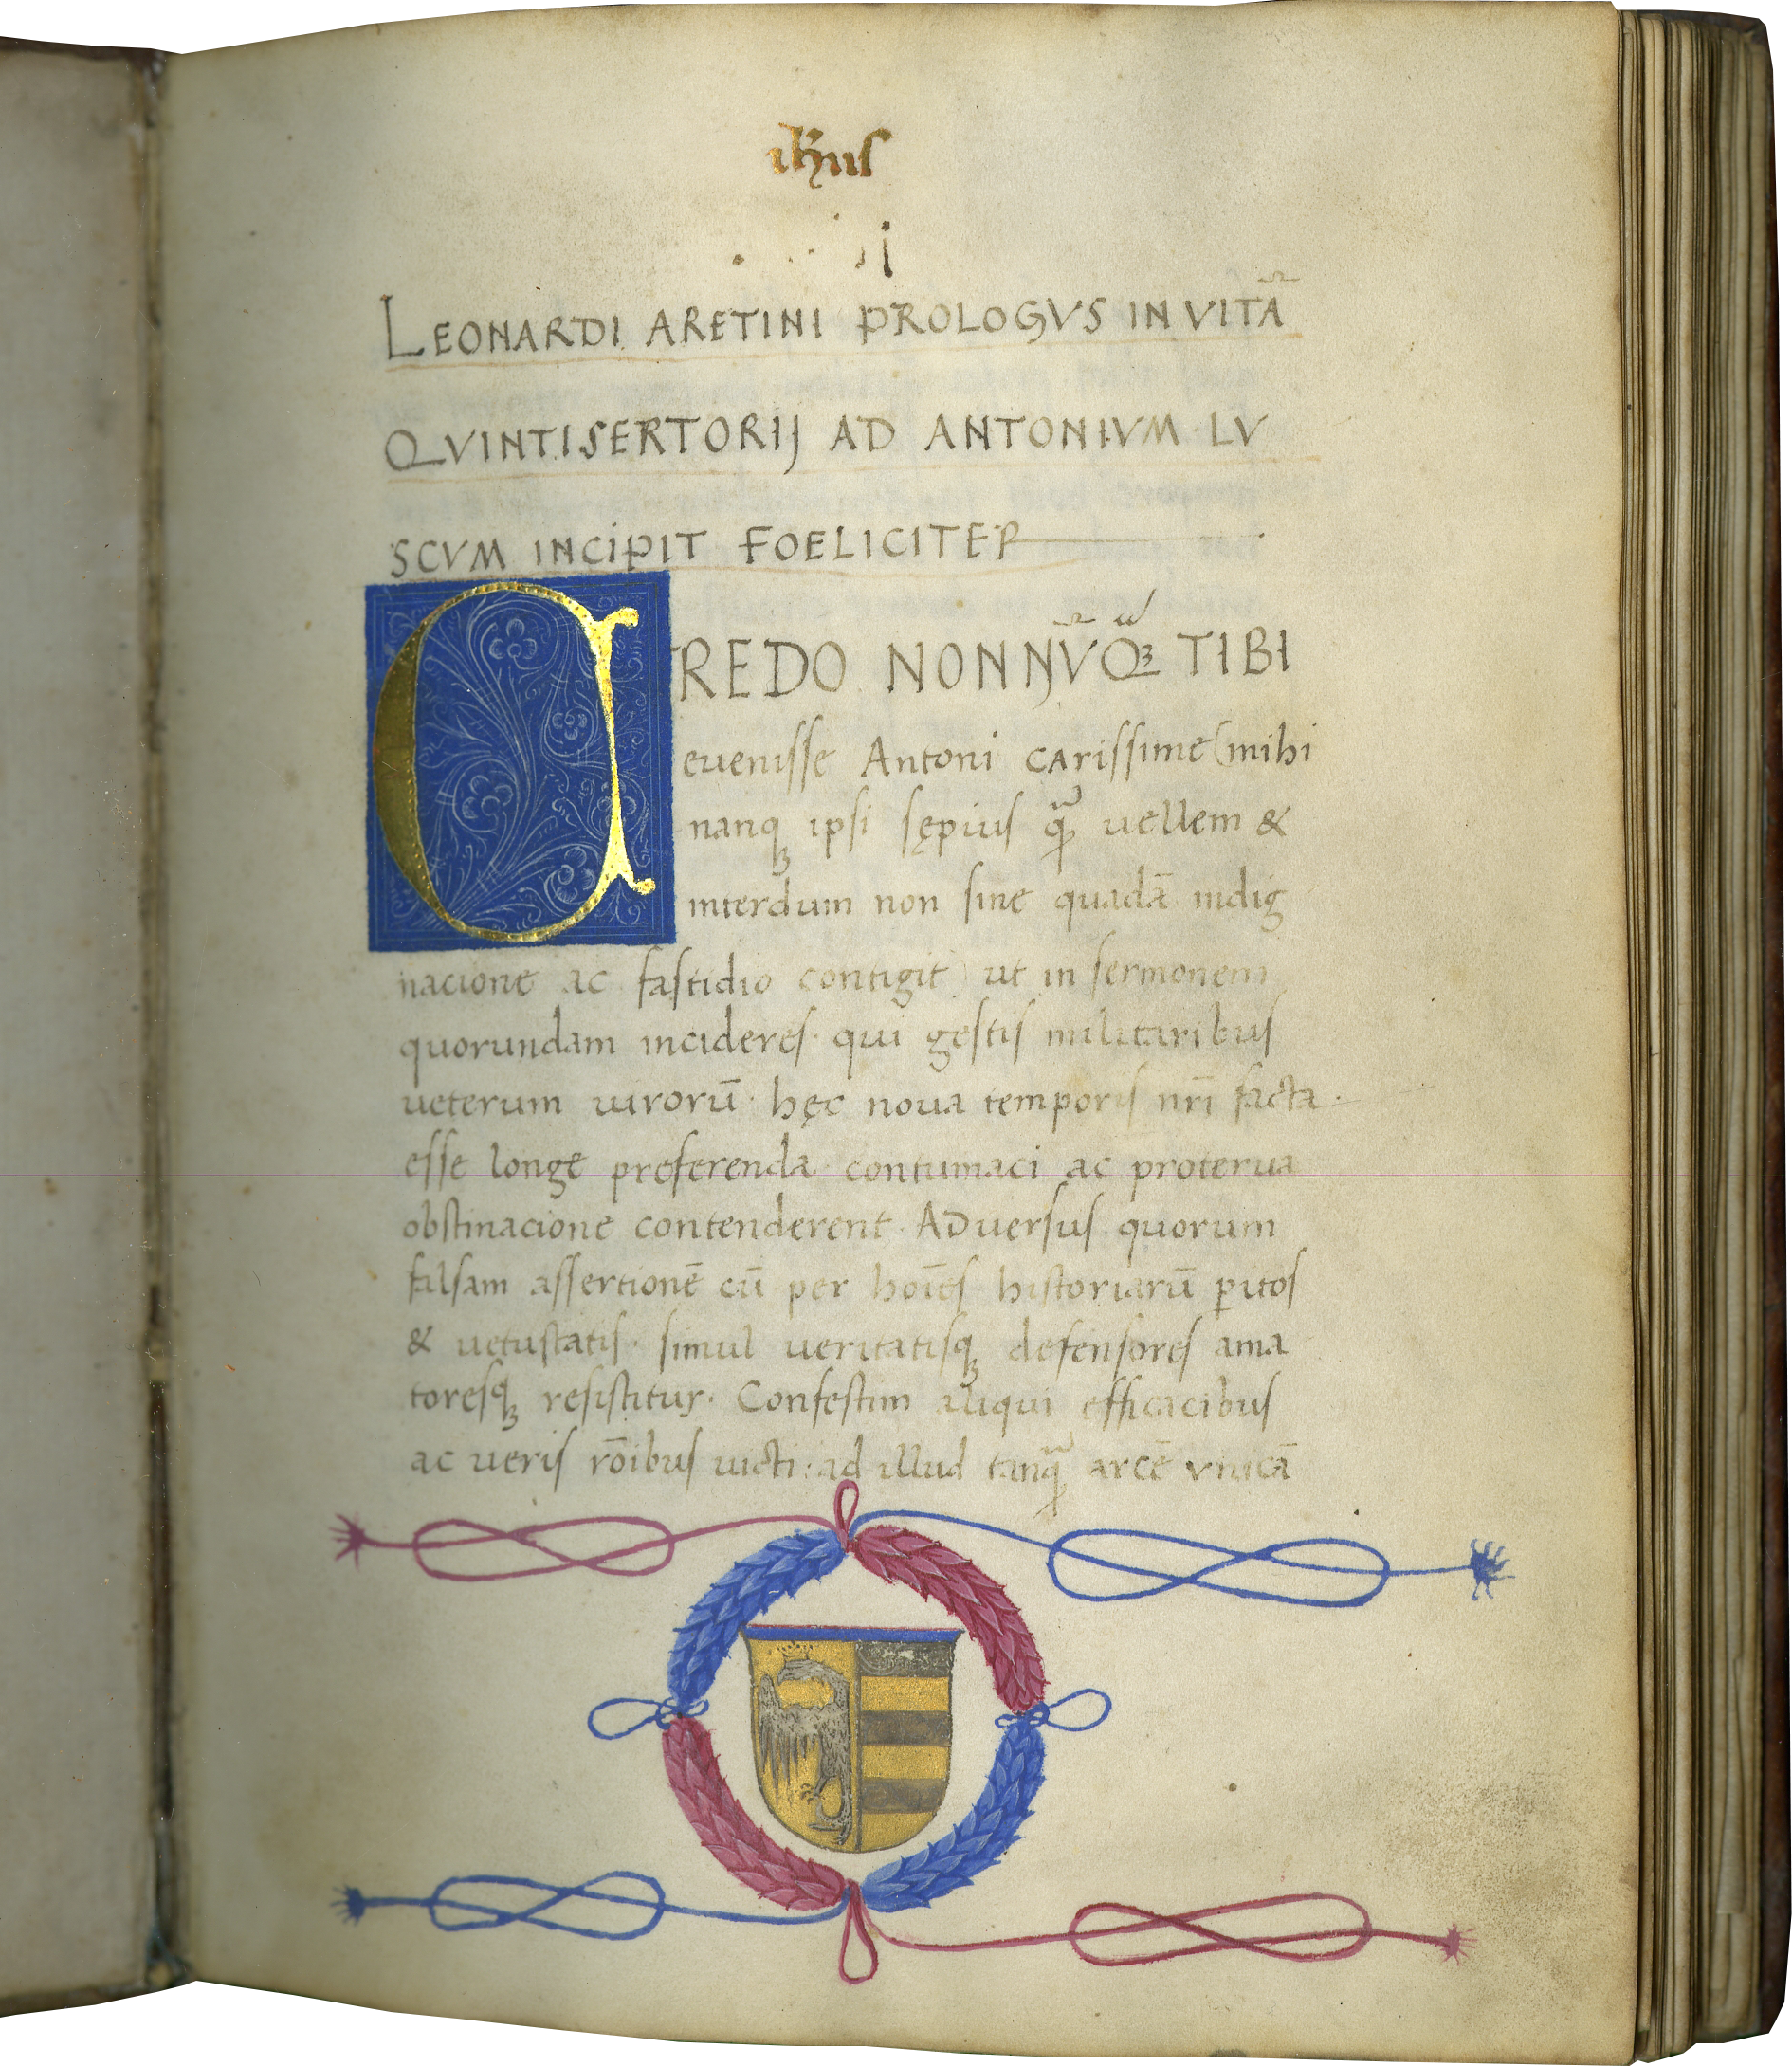 ihus
LEONARDI ARETINI PROLOGVS IN VITÃ
QVINTI SERTORIJ AD ANTONIVM LV
SCVM INCIPIT FOELICITER
CREDO NONNV̄Qꝫ TIBI
euenisse Antoni carissime (mihi
nanqꝫ ipsi sępius qᷓ uellem &
interdum non sine quadā indig
nacione ac fastidio contigit) ut in sermonem
quorundam incideres· qui gestis militaribus
ueterum uirorū· hęc noua temporis nr̄i facta·
esse longe preferenda contumaci ac proterua
obstinacione contenderent· ADuersus quorum
falsam assertionē cū per hoīes historiarū ꝑitos
& uetustatis· simul ueritatisqꝫ defensores ama
toresqꝫ resistitur· Confestim aliqui efficacibus
ac ueris rōibus uicti: ad illud tanqᷓ arcē vnicā